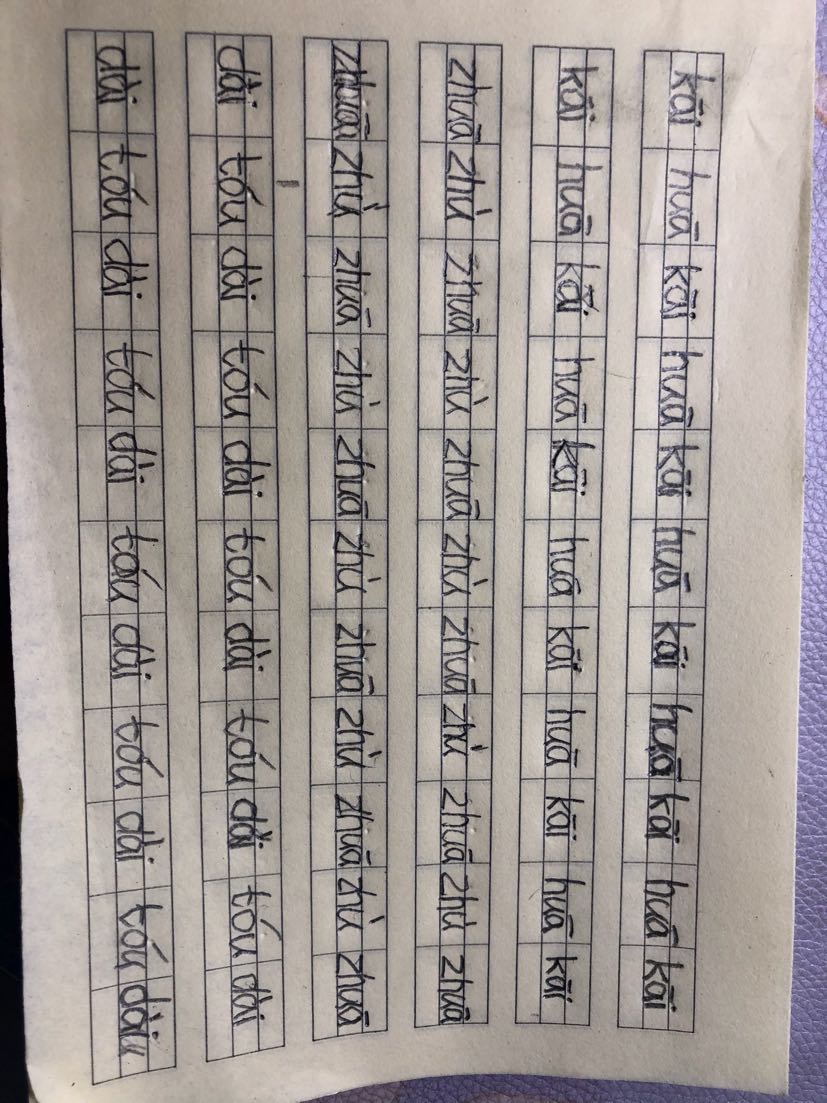 kāi huā kāi huā kāi huā kāi huā kāi huā kāi
kāi huā kāi huā kāi huā kāi huā kāi huā kāi
zhuā zhù zhuā zhù zhuā zhù zhuā zhù zhuā zhù zhuā
zhuā zhù zhuā zhù zhuā zhù zhuā zhù zhuā zhù zhuā
dài tóu dài tóu dài tóu dài tóu dài tóu dài
dài tóu dài tóu dài tóu dài tóu dài tóu